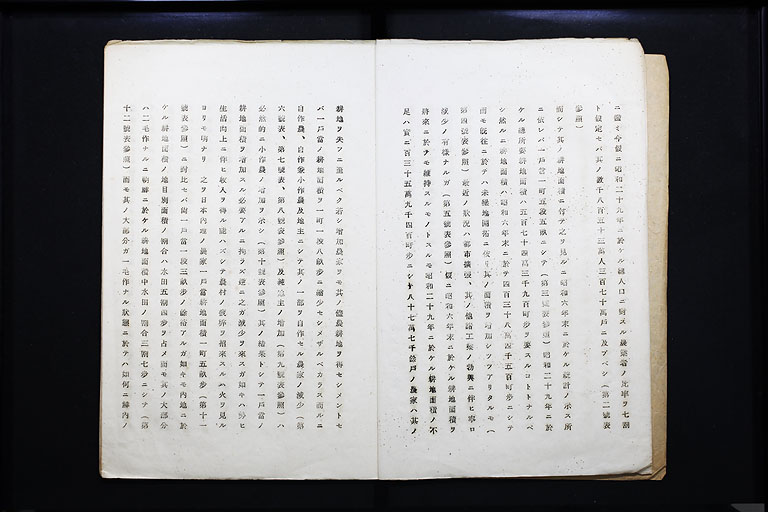 ニ鑑ミ今假ニ昭和二十九年ニ於ケル總人口ニ對スル農業者ノ比率ヲ七割
ト假定セバ其ノ數千八百五十三萬人三百七十萬戸ニ及ブベシ（第二號表
參照）
而シテ其ノ耕地面積ニ付テ之ヲ見ルニ昭和六年末ニ於ケル統計ノ示ス所
ニ依レバ一戸當一町五段五畝ニシテ（第三號表參照）昭和二十九年ニ於
ケル總所要耕地面積ハ五百七十四萬三千九百町歩ヲ要スルコトトナルベ
シ然ルニ耕地面積ハ昭和六年末ニ於テ四百三十八萬四千五百町歩ニシテ
而モ既往ニ於テハ未墾地開拓ニ依リ其ノ面積ヲ增加シツツアリタルモ（
第四號表參照）最近ノ狀況ハ都市擴張、其ノ他諸工業ノ勃興ニ伴ヒ寧ロ
減少ノ有樣ナルガ（第五號表參照）假ニ昭和六年末ニ於ケル耕地面積ヲ
將來ニ於テモ維持スルモノトスルモ昭和二十九年ニ於ケル耕地面積ノ不
足ハ實ニ百三十五萬九千四百町歩ニシテ八十七萬七千餘戸ノ農家ハ其ノ
耕地ヲ失フニ至ルベク若シ增加農家ヲモ其ノ儘農耕地ヲ得セシメントセ
バ一戸當ノ耕地面積ヲ一町一段八畝歩ニ縮少セシメザルベカラズ而ルニ
自作農、自作兼小作農及地主ニシテ其ノ一部ヲ自作セル農家ノ減少（第
六號表、第七號表、第八號表參照）及純地主ノ增加（第九號表參照）ハ
必然的ニ小作農ノ增加ヲ示シ（第十號表參照）其ノ結果トシテ一戸當ノ
耕地面積ヲ增加スル必要アルニ拘ラズ逆ニ之ガ減少ヲ來スガ如キハ
生活向上ニ伴ヒ收入ヲ得ル能ハズシテ農村ノ疲弊ヲ招來スルハ火ヲ見ル
ヨリモ明ナリ 之ヲ日本內地ノ農家一戸當耕地面積一町五畝歩（第十一
號表參照）ニ對比セバ尙一戸當一段三畝歩ノ餘裕アルガ如キモ內地ニ於
ケル耕地面積ノ地目別面積ノ割合ハ水田五割四歩ヲ占メ而モ其ノ大部分
ハ二毛作ナルニ朝鮮ニ於ケル耕地面積中水田ノ割合三割七歩ニシテ（第
十二號表參照）而モ其ノ大部分ガ一毛作ナル狀態ニ於テハ如何ニ鮮內ノ